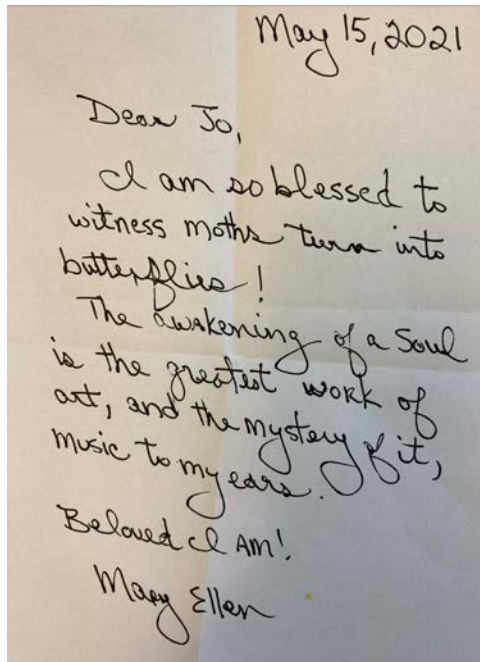 May 15, 2021
Dear Jo,
I am so blessed to
witness moths turn into
butterflies!
The awakening of a Soul
is the greatest work of
art, and the mystery of it,
music to my ears.
Beloved I AM!
Mary Ellen